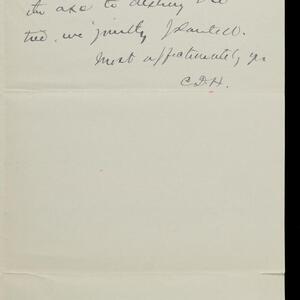 the axe to destroy the
tree, we jointly planted.
Most affectionately yrs
C.D.H.